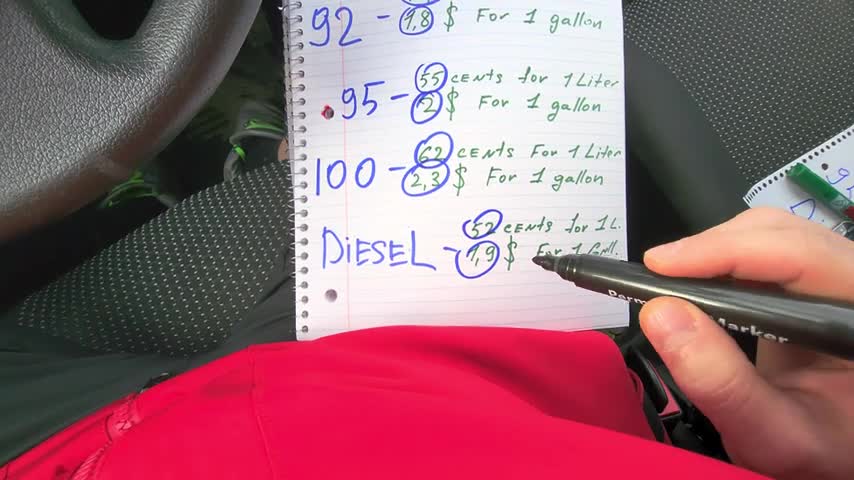 92 - 1,8 $ For 1 gallon
55 cents for 1 Liter
95 - 2 $ For 1 gallon
62 CENTS For 1 Liter
100 - 2,3 $ For 1 gallon
52 CENTS for 1 L.
DiESEL - 1,9 $ For 1 Gall.
Marker